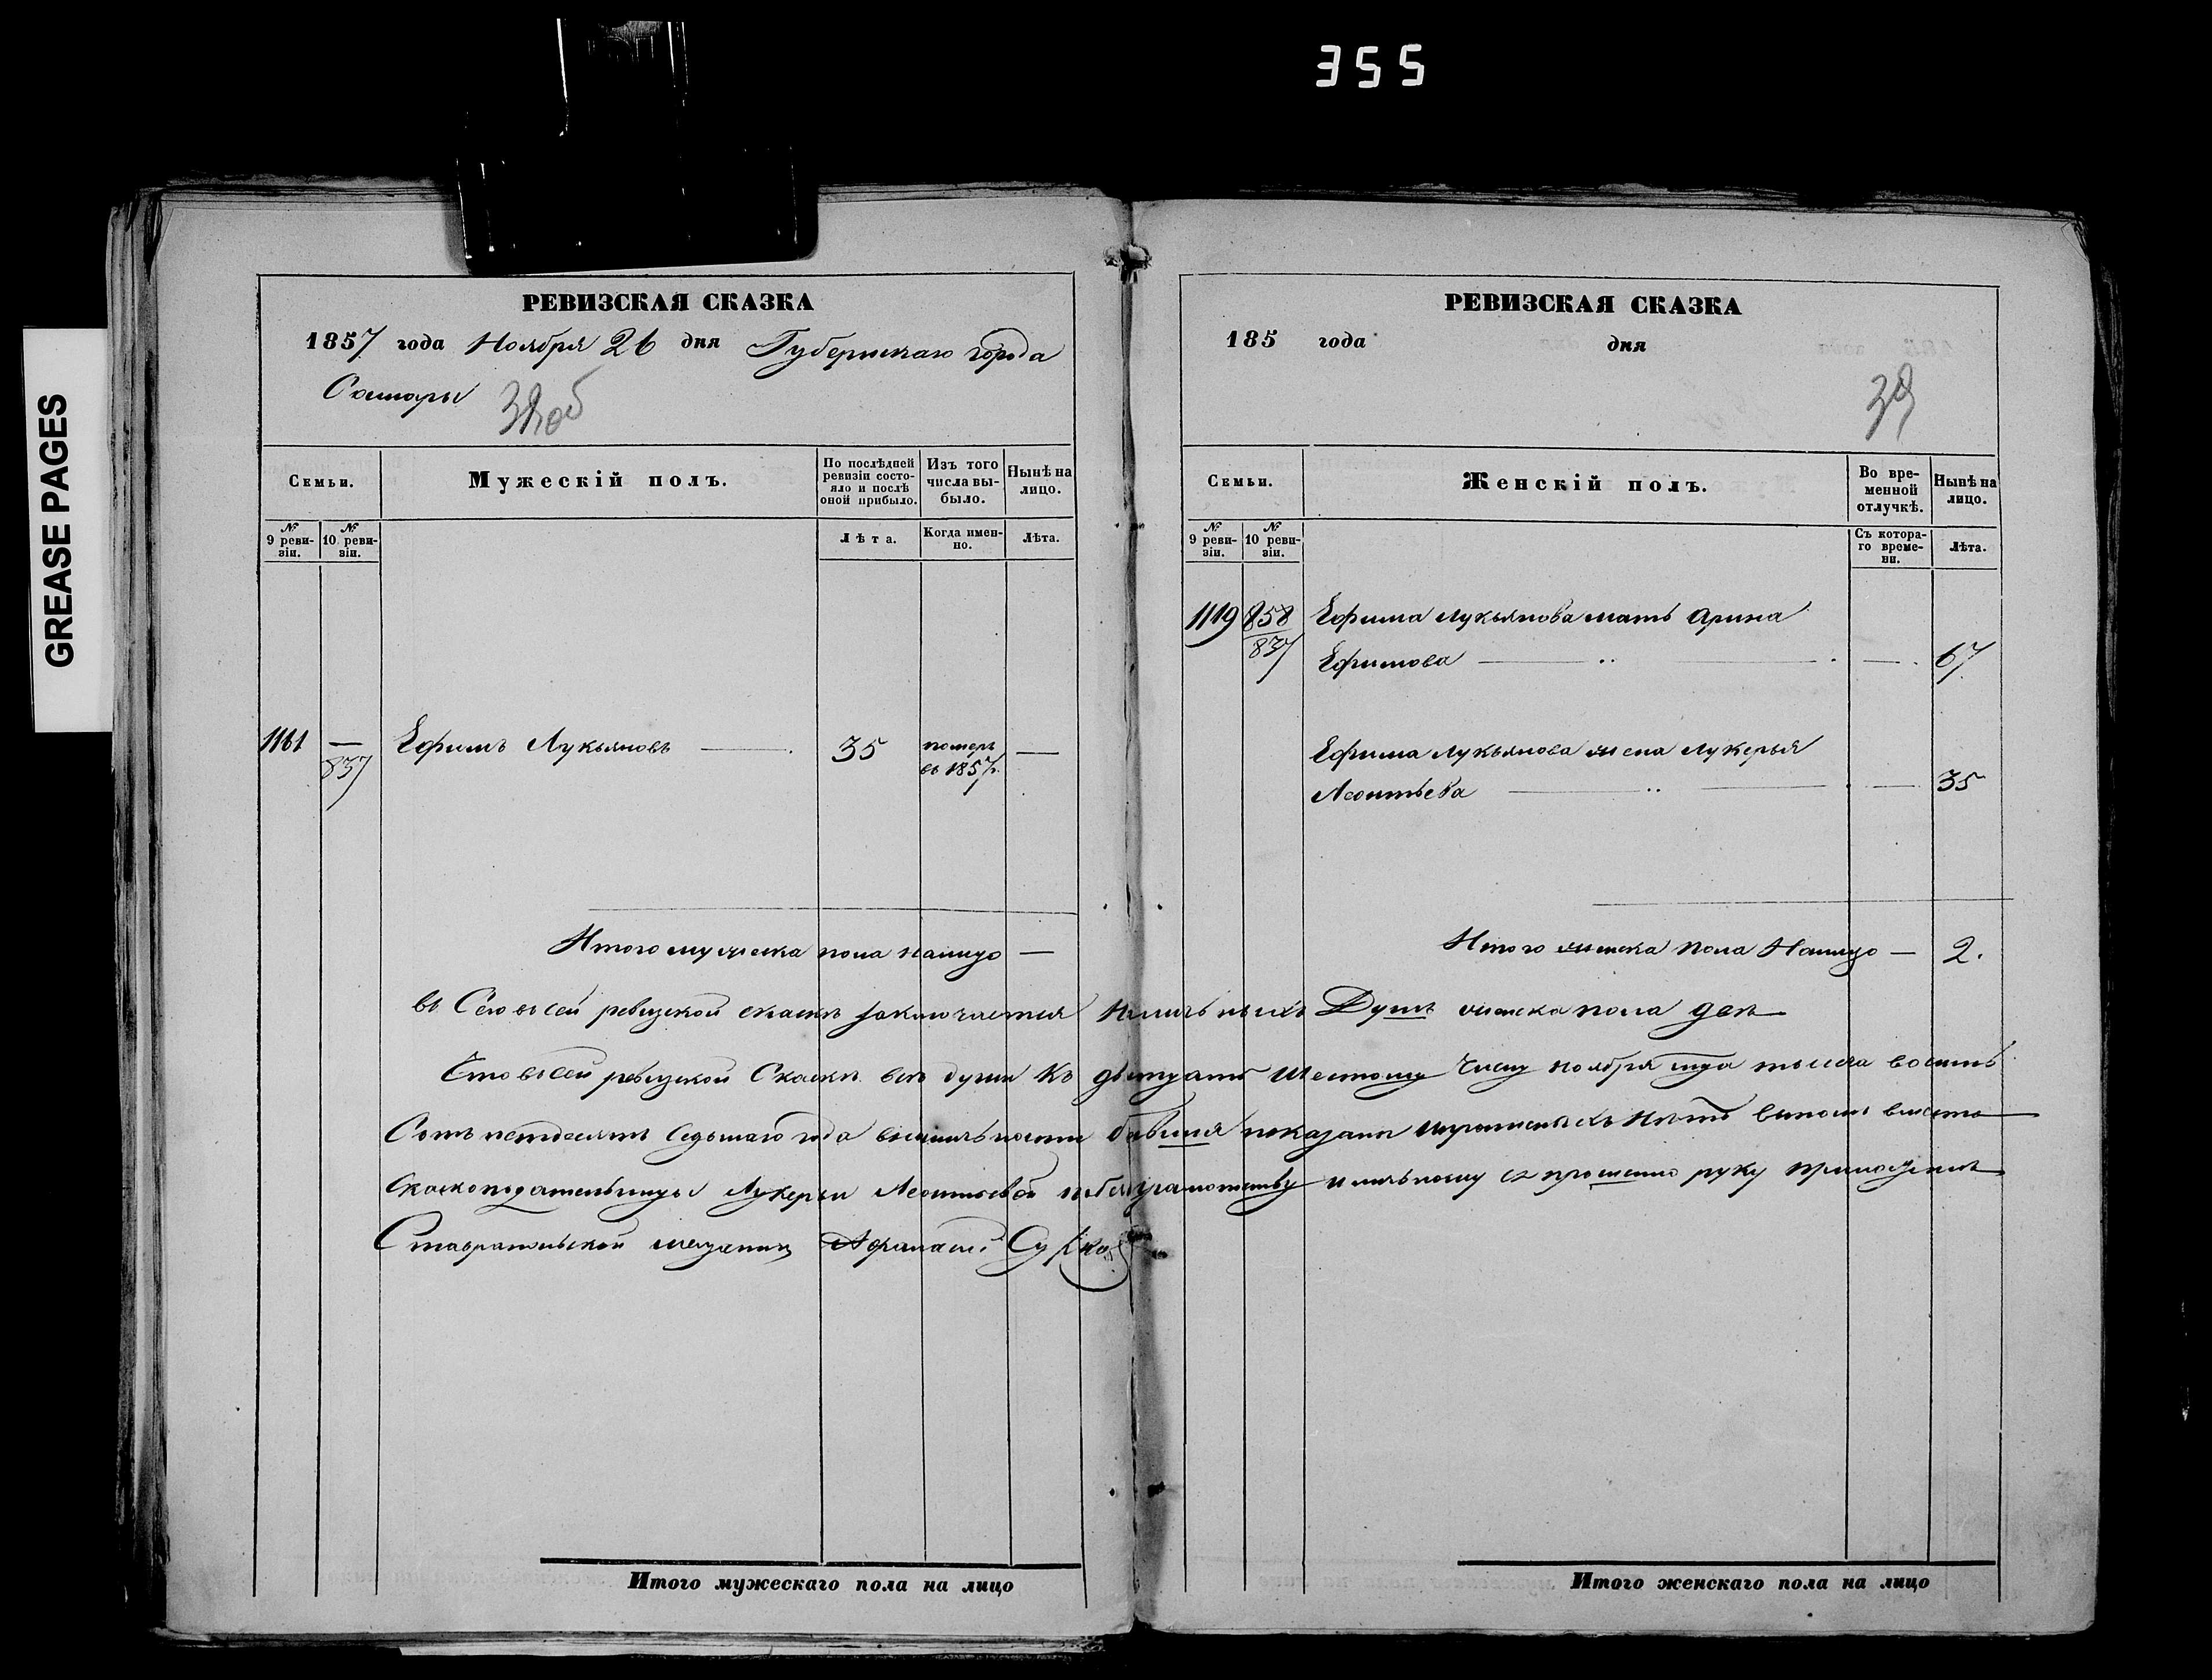 355
GREASE PAGES
РЕВИЗСКАЯ СКАЗКА
1857 года Ноября 26 дня Губернскаго города
Самары
Семьи.
Мужескій полъ.
По послѣдней ревизіи состояло и послѣ оной прибыло.
Изъ того числа выбыло.
Нынѣ на лицо.
№ 9 ревизіи.
№ 10 ревизіи.
Лѣта.
Когда именно.
Лѣта.
1161 — Ефимъ Лукьяновъ — 35 померъ —
837 въ 1857.
Итого мужеска пола налицо —
РЕВИЗСКАЯ СКАЗКА
185 года дня
39
Семьи.
Женскій полъ.
Во временной отлучкѣ.
Нынѣ на лицо.
№ 9 ревизіи.
№ 10 ревизіи.
Съ котораго времени.
Лѣта.
1119 858 Ефима Лукьянова мать Арина
837 Ефимова — 67
Ефима Лукьянова жена Лукерья
Леонтьева — 35
Итого женска пола Налицо — 2.
въ сей ревизской скаскѣ заключается Душъ женска пола двѣ
Что въ сей ревизской Скаскѣ всѣ души Къ Шестому Числу ноября тысеча восемь
Сотъ седьмаго года показаны нѣтъ въ томъ вместо
Лукерьи Леонтьевой и личному ея прошению руку
мещанин Афанасий
Итого мужескаго пола на лицо
Итого женскаго пола на лицо